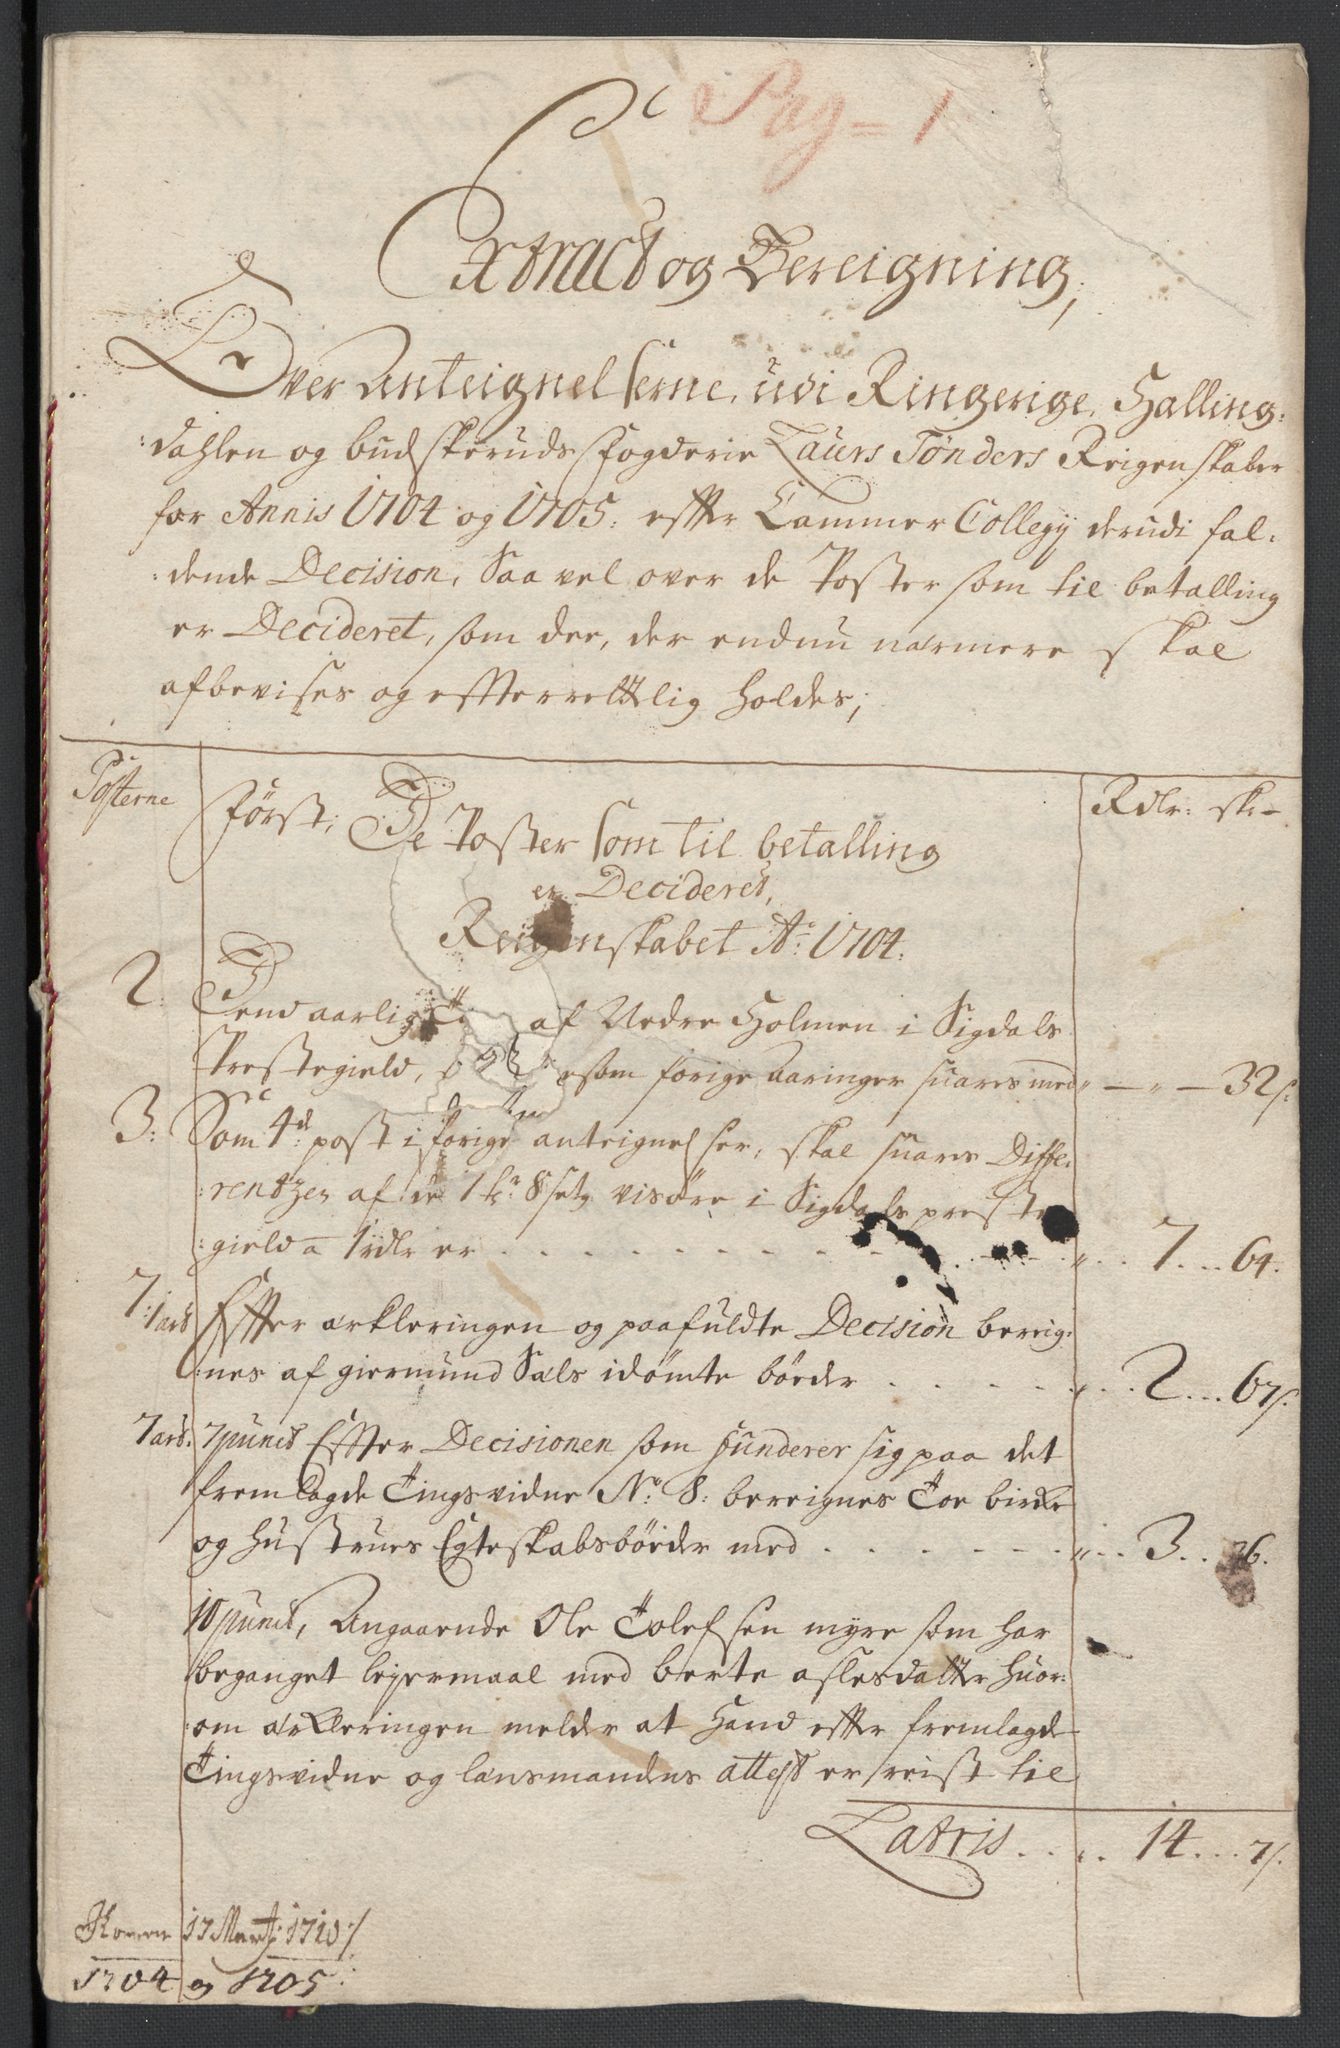 Pag = 1
Extract og Bereigning,
Over Anteignelserne, udi Ringerige, Halling-
:dahlen og budskeruds fogderie Laurs Tønders Reigenskaber
for Annis 1704 og 1705: effter Cammer Collegy derudi fal-
:dende Decision, Saa vel over de Poster som til betalling
er Decideret, som dee, der endnu nærmere skal
afbevises og effterrettlig holdes;
Posterne
Først, De Poster som til betalling
Rdlr: sk:
er Decideret,
Reigenskabet Ao: 1704.
2. Dend aarlig af Nedre Holmen i Sigdals
Prestegield, som forige Aaringer suares med " — " — 32 s:
3: Som 4de: post i forige anteignelser, skal suares Diffe-
:rentzen af de 1 hr 8 setg visøre i Sigdals preste
:gield a 1 rdlr er . . . 7 . . . 64.
7: 1ars Effter erkleringen og paafuldte Decision bereig-
:nes af giermund Sæls idømte bøeder . . . 2 . . . 67 s:
7 ars. 7 punct Effter Decisionen som funderer sig paa det
fremlagde Tingsvidne No: 8: bereignes Toe birke
og hustrues Egteskabsbøeder med . . . 3 . . 36.
10 punct, Angaaende Ole Tolefsen myre som har
beganget leyermaal med berte aslesdatter huor-
:om erkleringen melder at hand effter fremlagde
Tingsvidne og lænsmandens attest er reist til
Latris . . . 14 . . . 7 s:
17 Marty 1710 /
1704 og 1705: